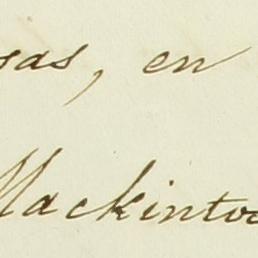 sas, en
Mackintos